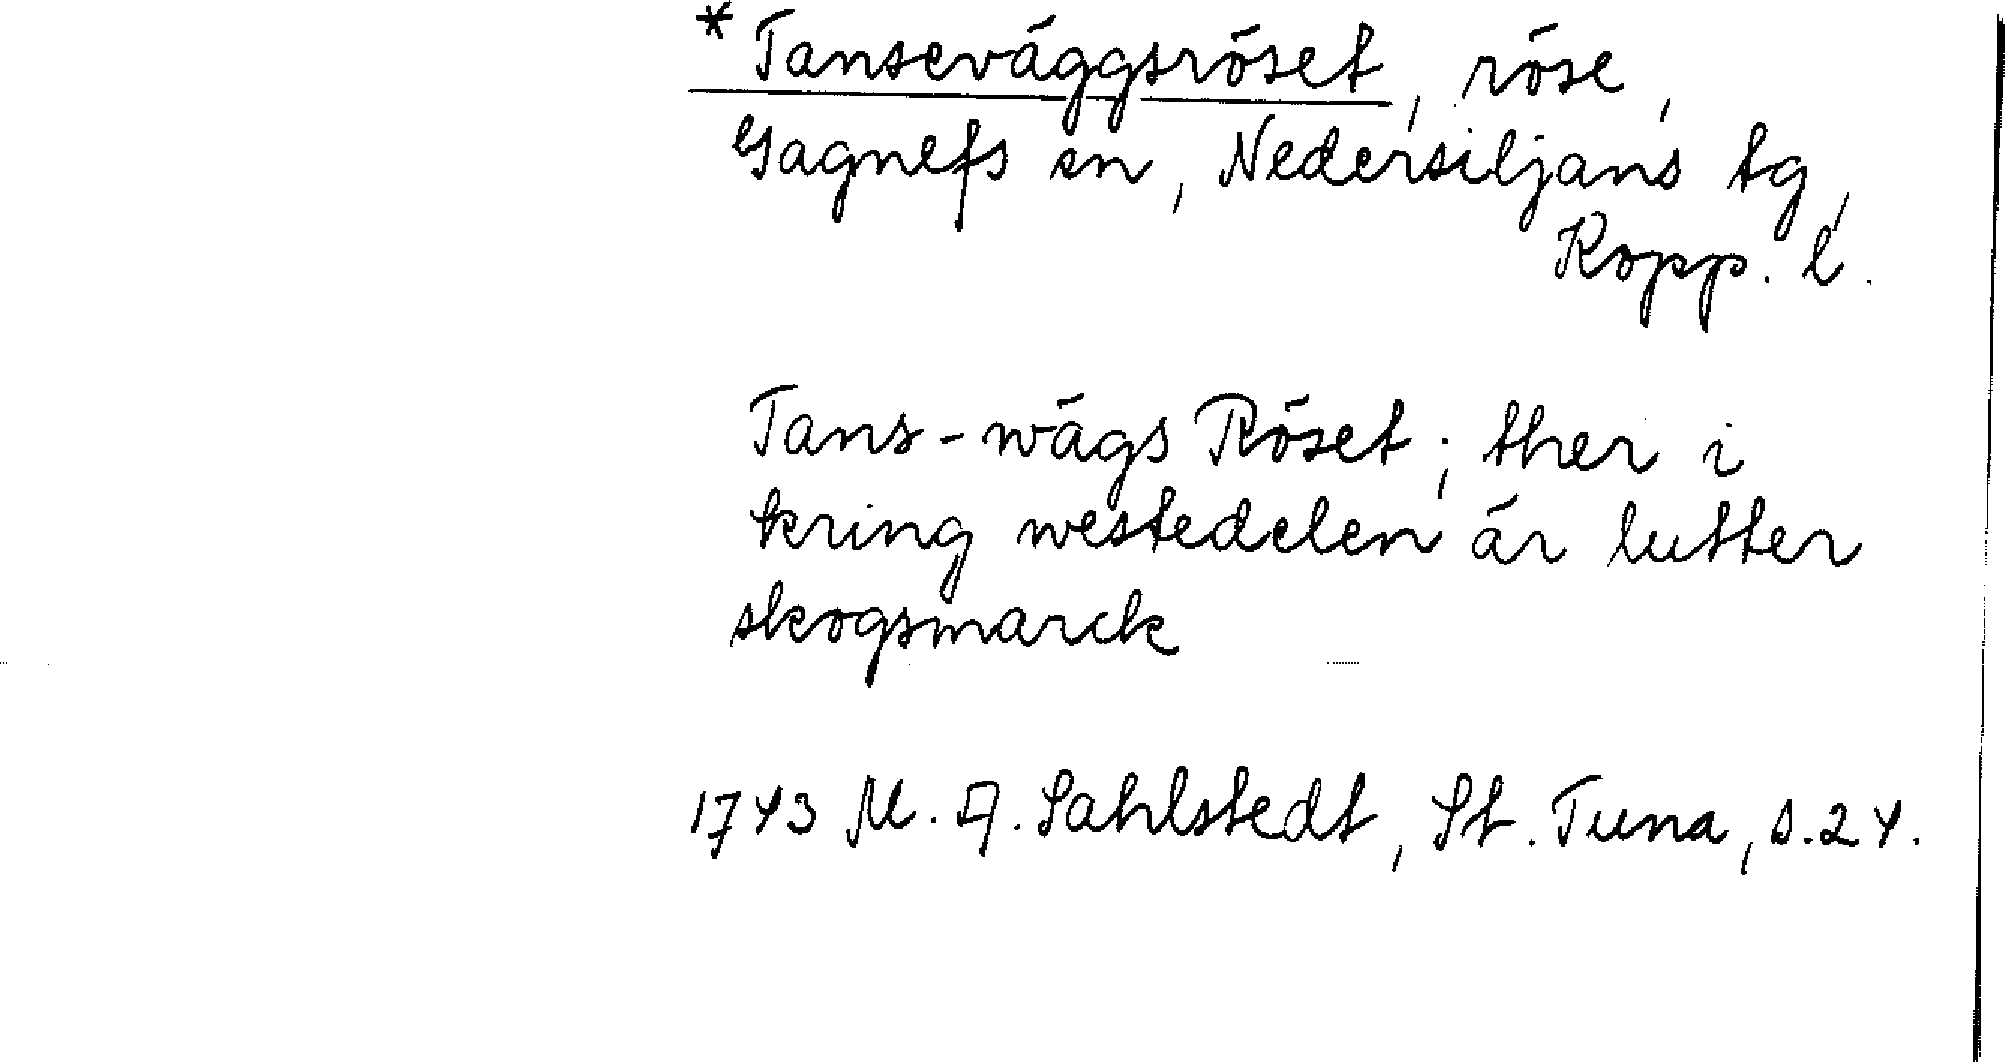 * Tanseväggsröset, röse,
Gagnefs sn, Nedersiljans tg,
Kopp. l.
Tans-wägs Röset; ther i
kring westedelen är lutter
skogsmarck
1743 M. A. Sahlstedt, St. Tuna, s. 24.